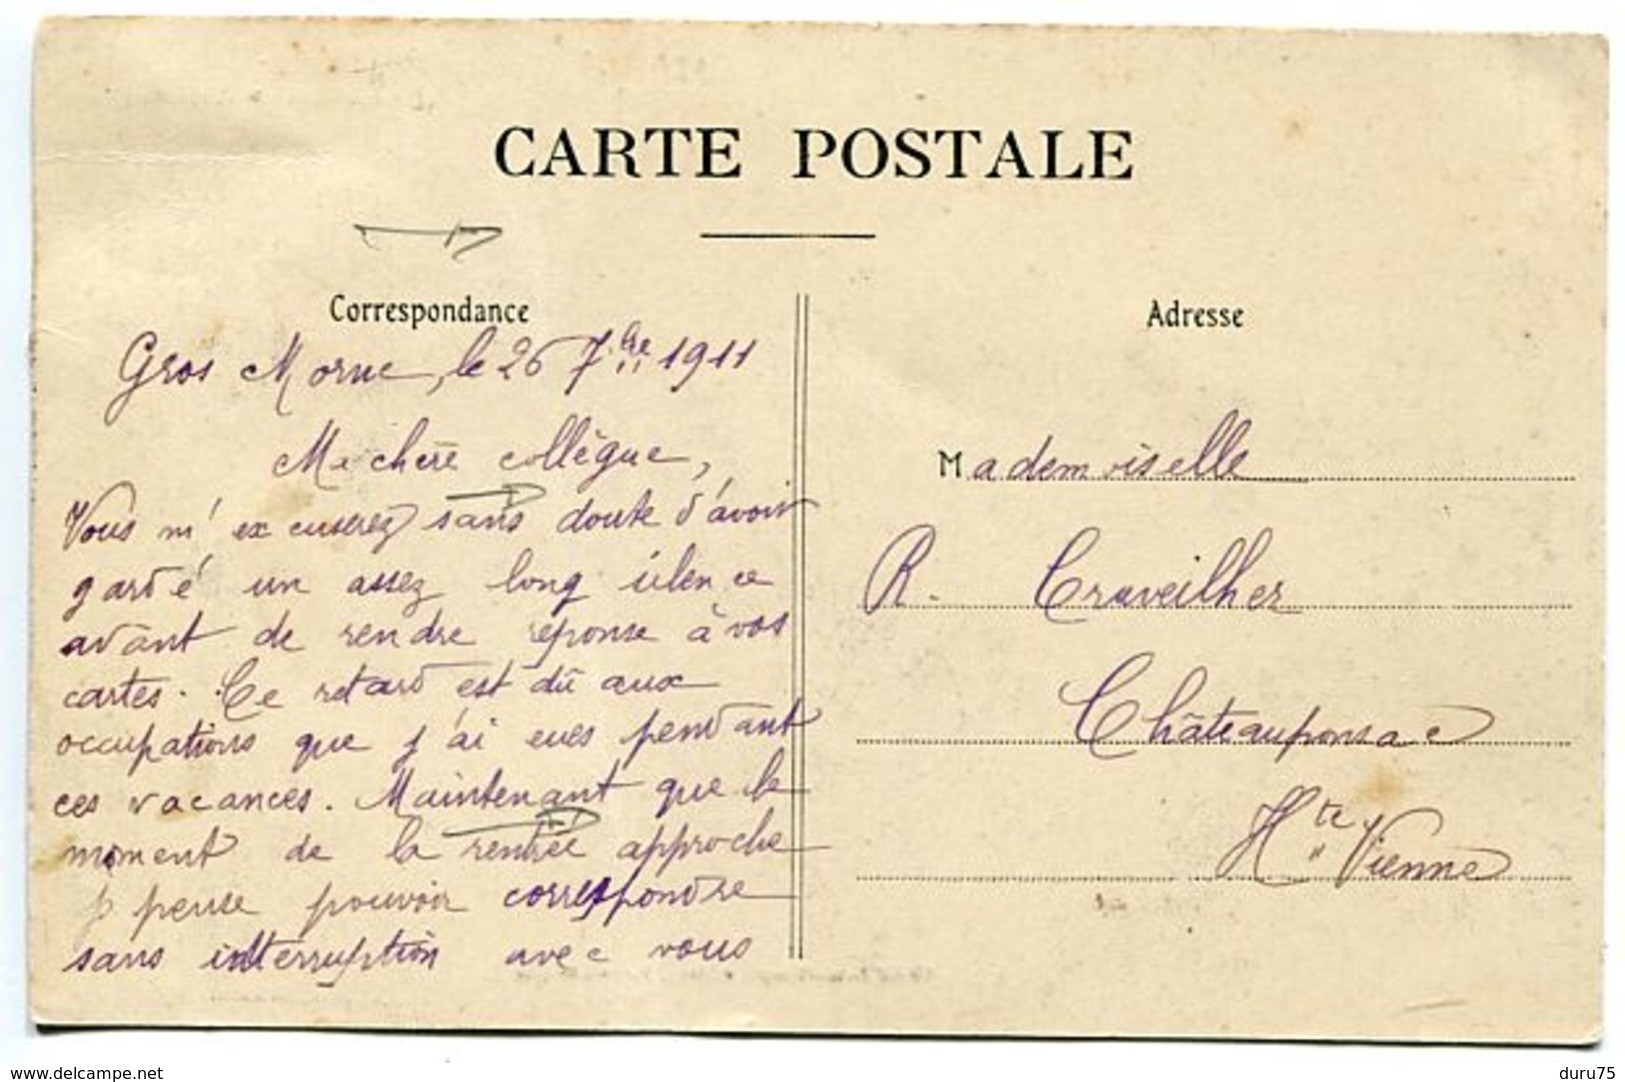 CARTE POSTALE
Correspondance
Gros Morne, le 26 7bre 1911
Ma chère collègue,
Vous m'excuserez sans doute d'avoir
gardé un assez long silence
avant de rendre réponse à vos
cartes. Ce retard est dû aux
occupations que j'ai eues pendant
ces vacances. Maintenant que le
moment de la rentrée approche
je pense pouvoir correspondre
sans interruption avec vous
Adresse
Mademoiselle
R. Cruveilher
Châteauponsac
Hte Vienne
www.delcampe.net
duru75